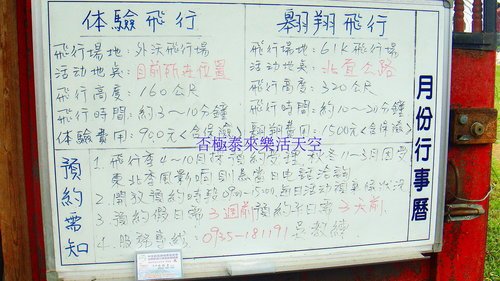 体驗飛行
飛行場地:外沃飛行場
活动地点:目前所在位置
飛行高度:160公尺
飛行時間:約3~10分鐘
体驗費用:900元(含保險)
翱翔飛行
飛行場地:61K飛行場
活动地点:北宜公路
飛行高度:320公尺
飛行時間:約10~20分鐘
翱翔費用:1500元(含保險)
否極泰來樂活天空
預約需知
1. 飛行季4~10月
東北季風影响
2. 開放預約時段
3. 預約假日需3週前預約平日需3天前
4. 服務專線:0935-181191 吳教練
月份行事曆